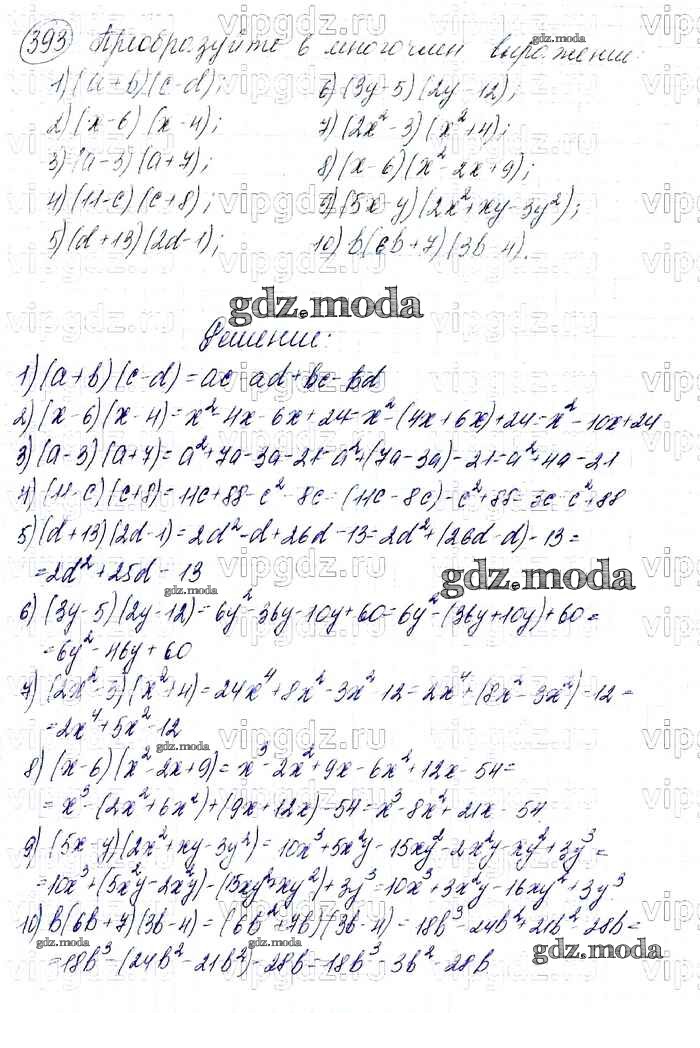 393 Преобразуйте в многочлен выражение:
1) (a+b)(c-d);
2) (x-6)(x-4);
3) (a-3)(a+7);
4) (11-c)(c+8);
5) (d+13)(2d-1);
6) (3y-5)(2y-12);
7) (2x²-3)(x²+4);
8) (x-6)(x²-2x+9);
9) (5x-y)(2x²+xy-3y²);
10) b(6b+7)(3b-4).
gdz.moda
Решение:
1) (a+b)(c-d)=ac-ad+bc-bd
2) (x-6)(x-4)=x²-4x-6x+24=x²-(4x+6x)+24=x²-10x+24
3) (a-3)(a+7)=a²+7a-3a-21=a²+(7a-3a)-21=a²+4a-21
4) (11-c)(c+8)=11c+88-c²-8c=(11c-8c)-c²+88=3c-c²+88
5) (d+13)(2d-1)=2d²-d+26d-13=2d²+(26d-d)-13=
=2d²+25d-13
gdz.moda
gdz.moda
6) (3y-5)(2y-12)=6y²-36y-10y+60=6y²-(36y+10y)+60=
=6y²-46y+60
7) (2x²-3)(x²+4)=24x⁴+8x²-3x²-12=2x⁴+(8x²-3x²)-12=
=2x⁴+5x²-12
gdz.moda
8) (x-6)(x²-2x+9)=x³-2x²+9x-6x²+12x-54=
=x³-(2x²+6x²)+(9x+12x)-54=x³-8x²+21x-54
9) (5x-y)(2x²+xy-3y²)=10x³+5x²y-15xy²-2x²y-xy²+3y³=
=10x³+(5x²y-2x²y)-(15xy²+xy²)+3y³=10x³+3x²y-16xy²+3y³
10) b(6b+7)(3b-4)=(6b²+7b)(3b-4)=18b³-24b²+21b²-28b=
gdz.moda gdz.moda gdz.moda
=18b³-(24b²-21b²)-28b=18b³-3b²-28b